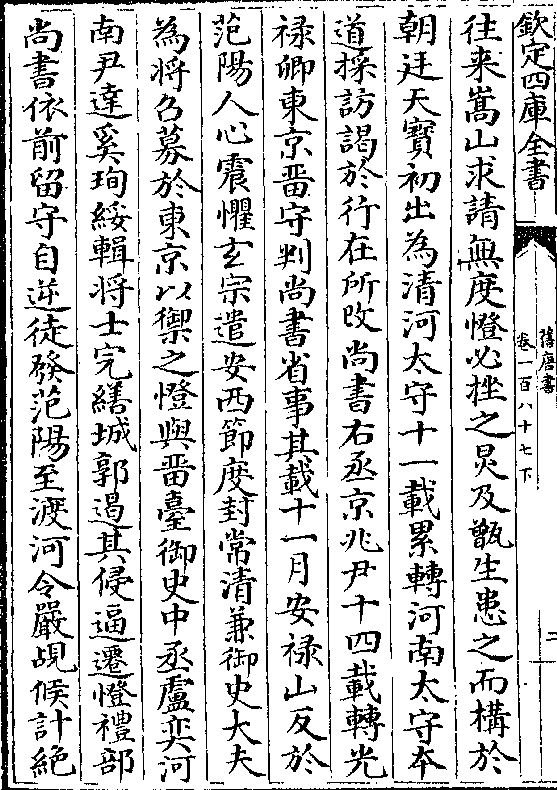 欽定四庫全書
舊唐書
卷一百八十七下
二
往来嵩山求請無度憕必挫之炅及甑生患之而構於
朝廷天寶初出為清河太守十一載累轉河南太守本
道採訪謁於行在所改尚書右丞京兆尹十四載轉光
禄卿東京畱守判尚書省事其載十一月安禄山反於
范陽人心震懼玄宗遣安西節度封常清兼御史大夫
為将召募於東京以禦之憕與畱臺御史中丞盧奕河
南尹達奚珣綏輯将士完繕城郭遏其侵逼遷憕禮部
尚書依前留守自逆徒發范陽至渡河令嚴覘候計絶